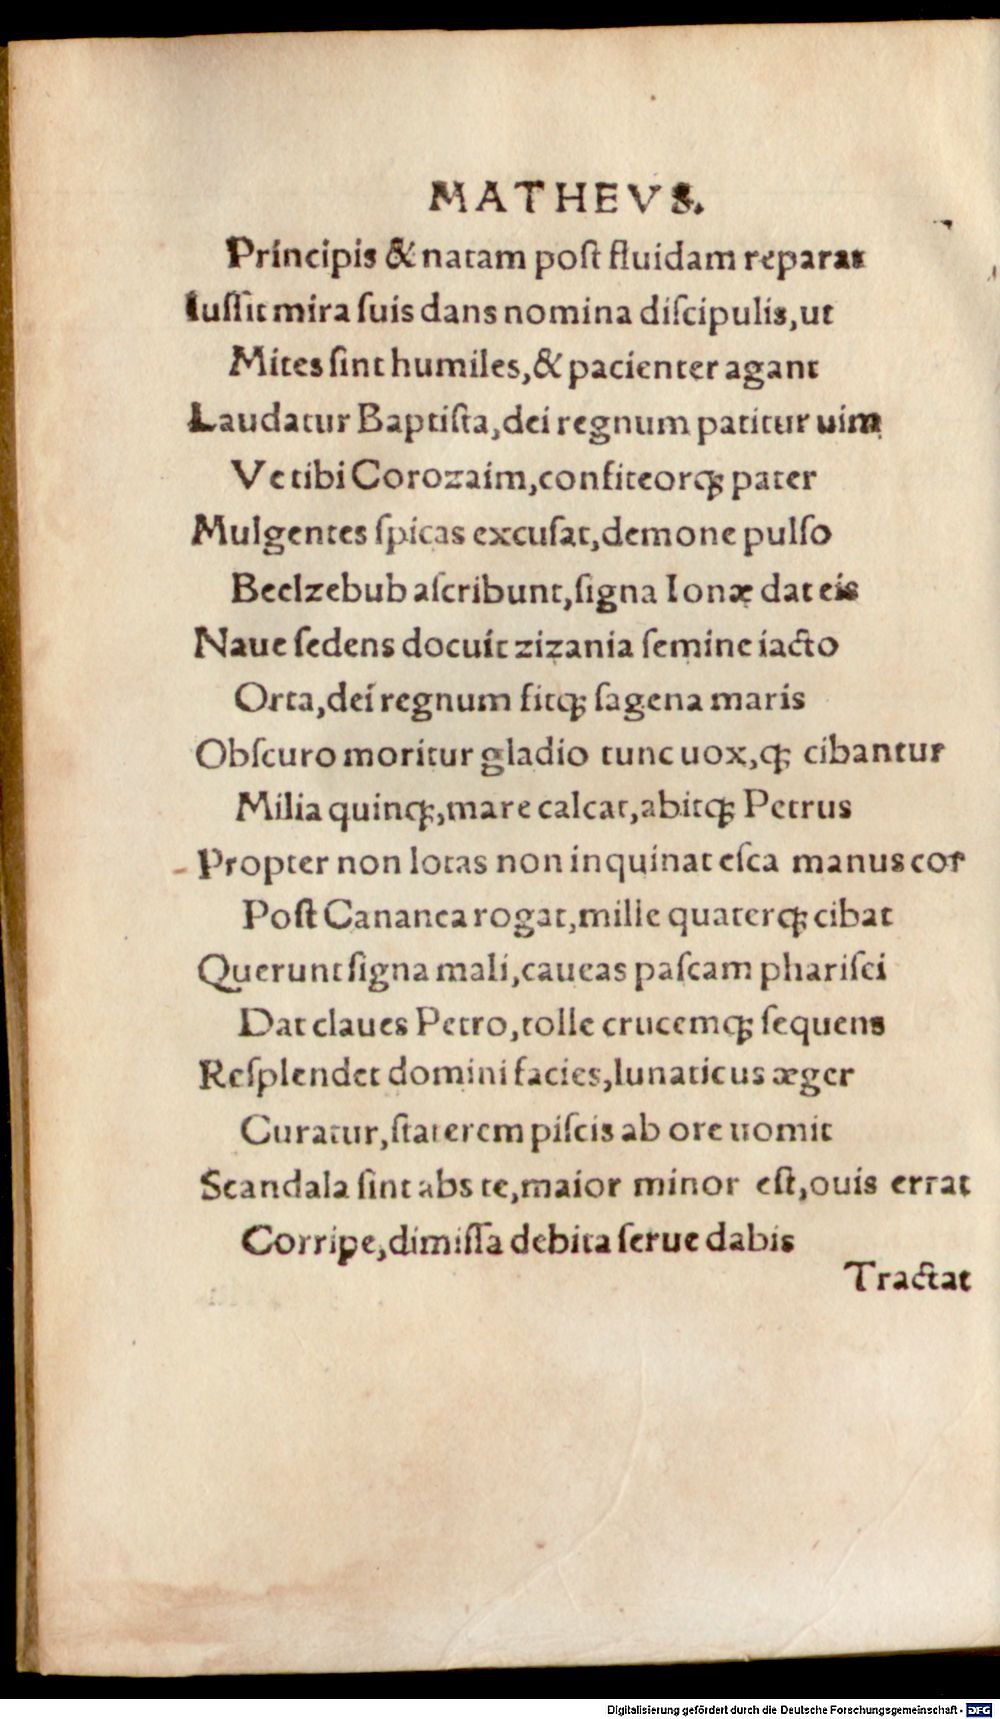 MATHEVS.
Principis & natam post fluidam reparat
Iussit mira suis dans nomina discipulis, ut
Mites sint humiles, & pacienter agant
Laudatur Baptista, dei regnum patitur uim
Ve tibi Corozaim, confiteorꝗ; pater
Mulgentes spicas excusat, demone pulso
Beelzebub ascribunt, signa Ionæ dat eis
Naue sedens docuit zizania semine iacto
Orta, dei regnum fitꝗ; sagena maris
Obscuro moritur gladio tunc uox, ꝗ; cibantur
Milia quinꝗ;, mare calcat, abitꝗ; Petrus
Propter non lotas non inquinat esca manus cor
Post Cananea rogat, mille quaterꝗ; cibat
Querunt signa mali, caueas pascam pharisei
Dat claues Petro, tolle crucemꝗ; sequens
Resplendet domini facies, lunaticus æger
Curatur, staterem piscis ab ore uomit
Scandala sint abs te, maior minor est, ouis errat
Corripe, dimissa debita serue dabis
Tractat
Digitalisierung gefördert durch die Deutsche Forschungsgemeinschaft - DFG